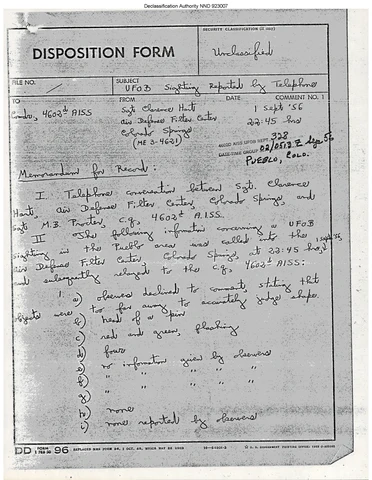 Declassification Authority NND 923007
DISPOSITION FORM
SECURITY CLASSIFICATION (If any)
Unclassified
FILE NO.
SUBJECT
UFOB Sighting Reported by Telephone
TO
FROM
DATE
COMMENT NO. 1
Comdr, 4602d AISS
Sgt Clarence Hart
Air Defense Filter Center
Colorado Springs
(ME 3-4621)
1 Sept '56
22:45 hrs
328
DATE-TIME GROUP 02/0513 Z Sep 56
PUEBLO, COLO.
Memorandum for Record:
I. Telephone conversation between Sgt. Clarence
Hart, Air Defense Filter Center, Colorado Springs, and
Sgt M.B. Procter, C.Q., 4602d AISS.
II The following information concerning a UFOB
sighting in the Pueblo area was called into the
Air Defense Filter Center Colorado Springs, at 22:45 hrs, 1 Sept 56,
and subsequently relayed to the C.Q., 4602d AISS:
1. a) observer declined to comment, stating that
objects were too far away to accurately judge shape.
b) head of a pin
c) red and green, flashing
d) four
e) no information given by observers
f) " " " "
g) " " " "
h) none
i) none reported by observers
DD FORM 96
1 FEB 50
REPLACES NME FORM 96, 1 OCT 48, WHICH MAY BE USED